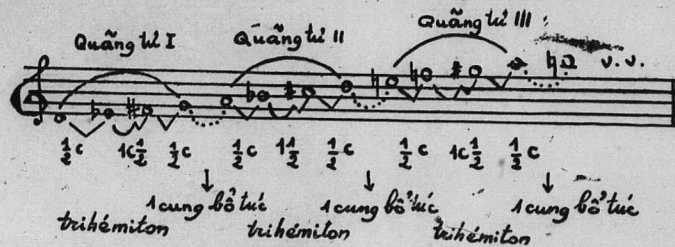 Quãng tứ I Quãng tứ II Quãng tứ III
v.v.
½c 1c½ ½c ½c 1½ ½c ½c 1c½ ½c
1 cung bổ túc 1 cung bổ túc 1 cung bổ túc
trihémiton trihémiton trihémiton